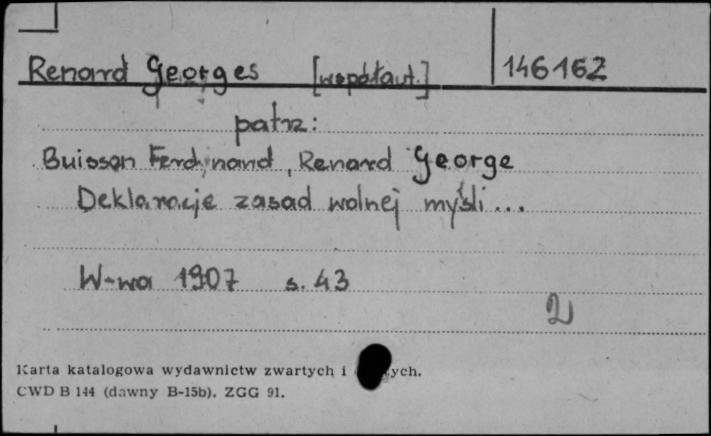 Renard Georges [współaut.] 146162
patrz:
Buisson Ferdinand, Renard George
Deklaracje zasad wolnej myśli...
W-wa 1907 s. 43
2
Karta katalogowa wydawnictw zwartych i
CWD B 144 (dawny B-15b). ZGG 91.